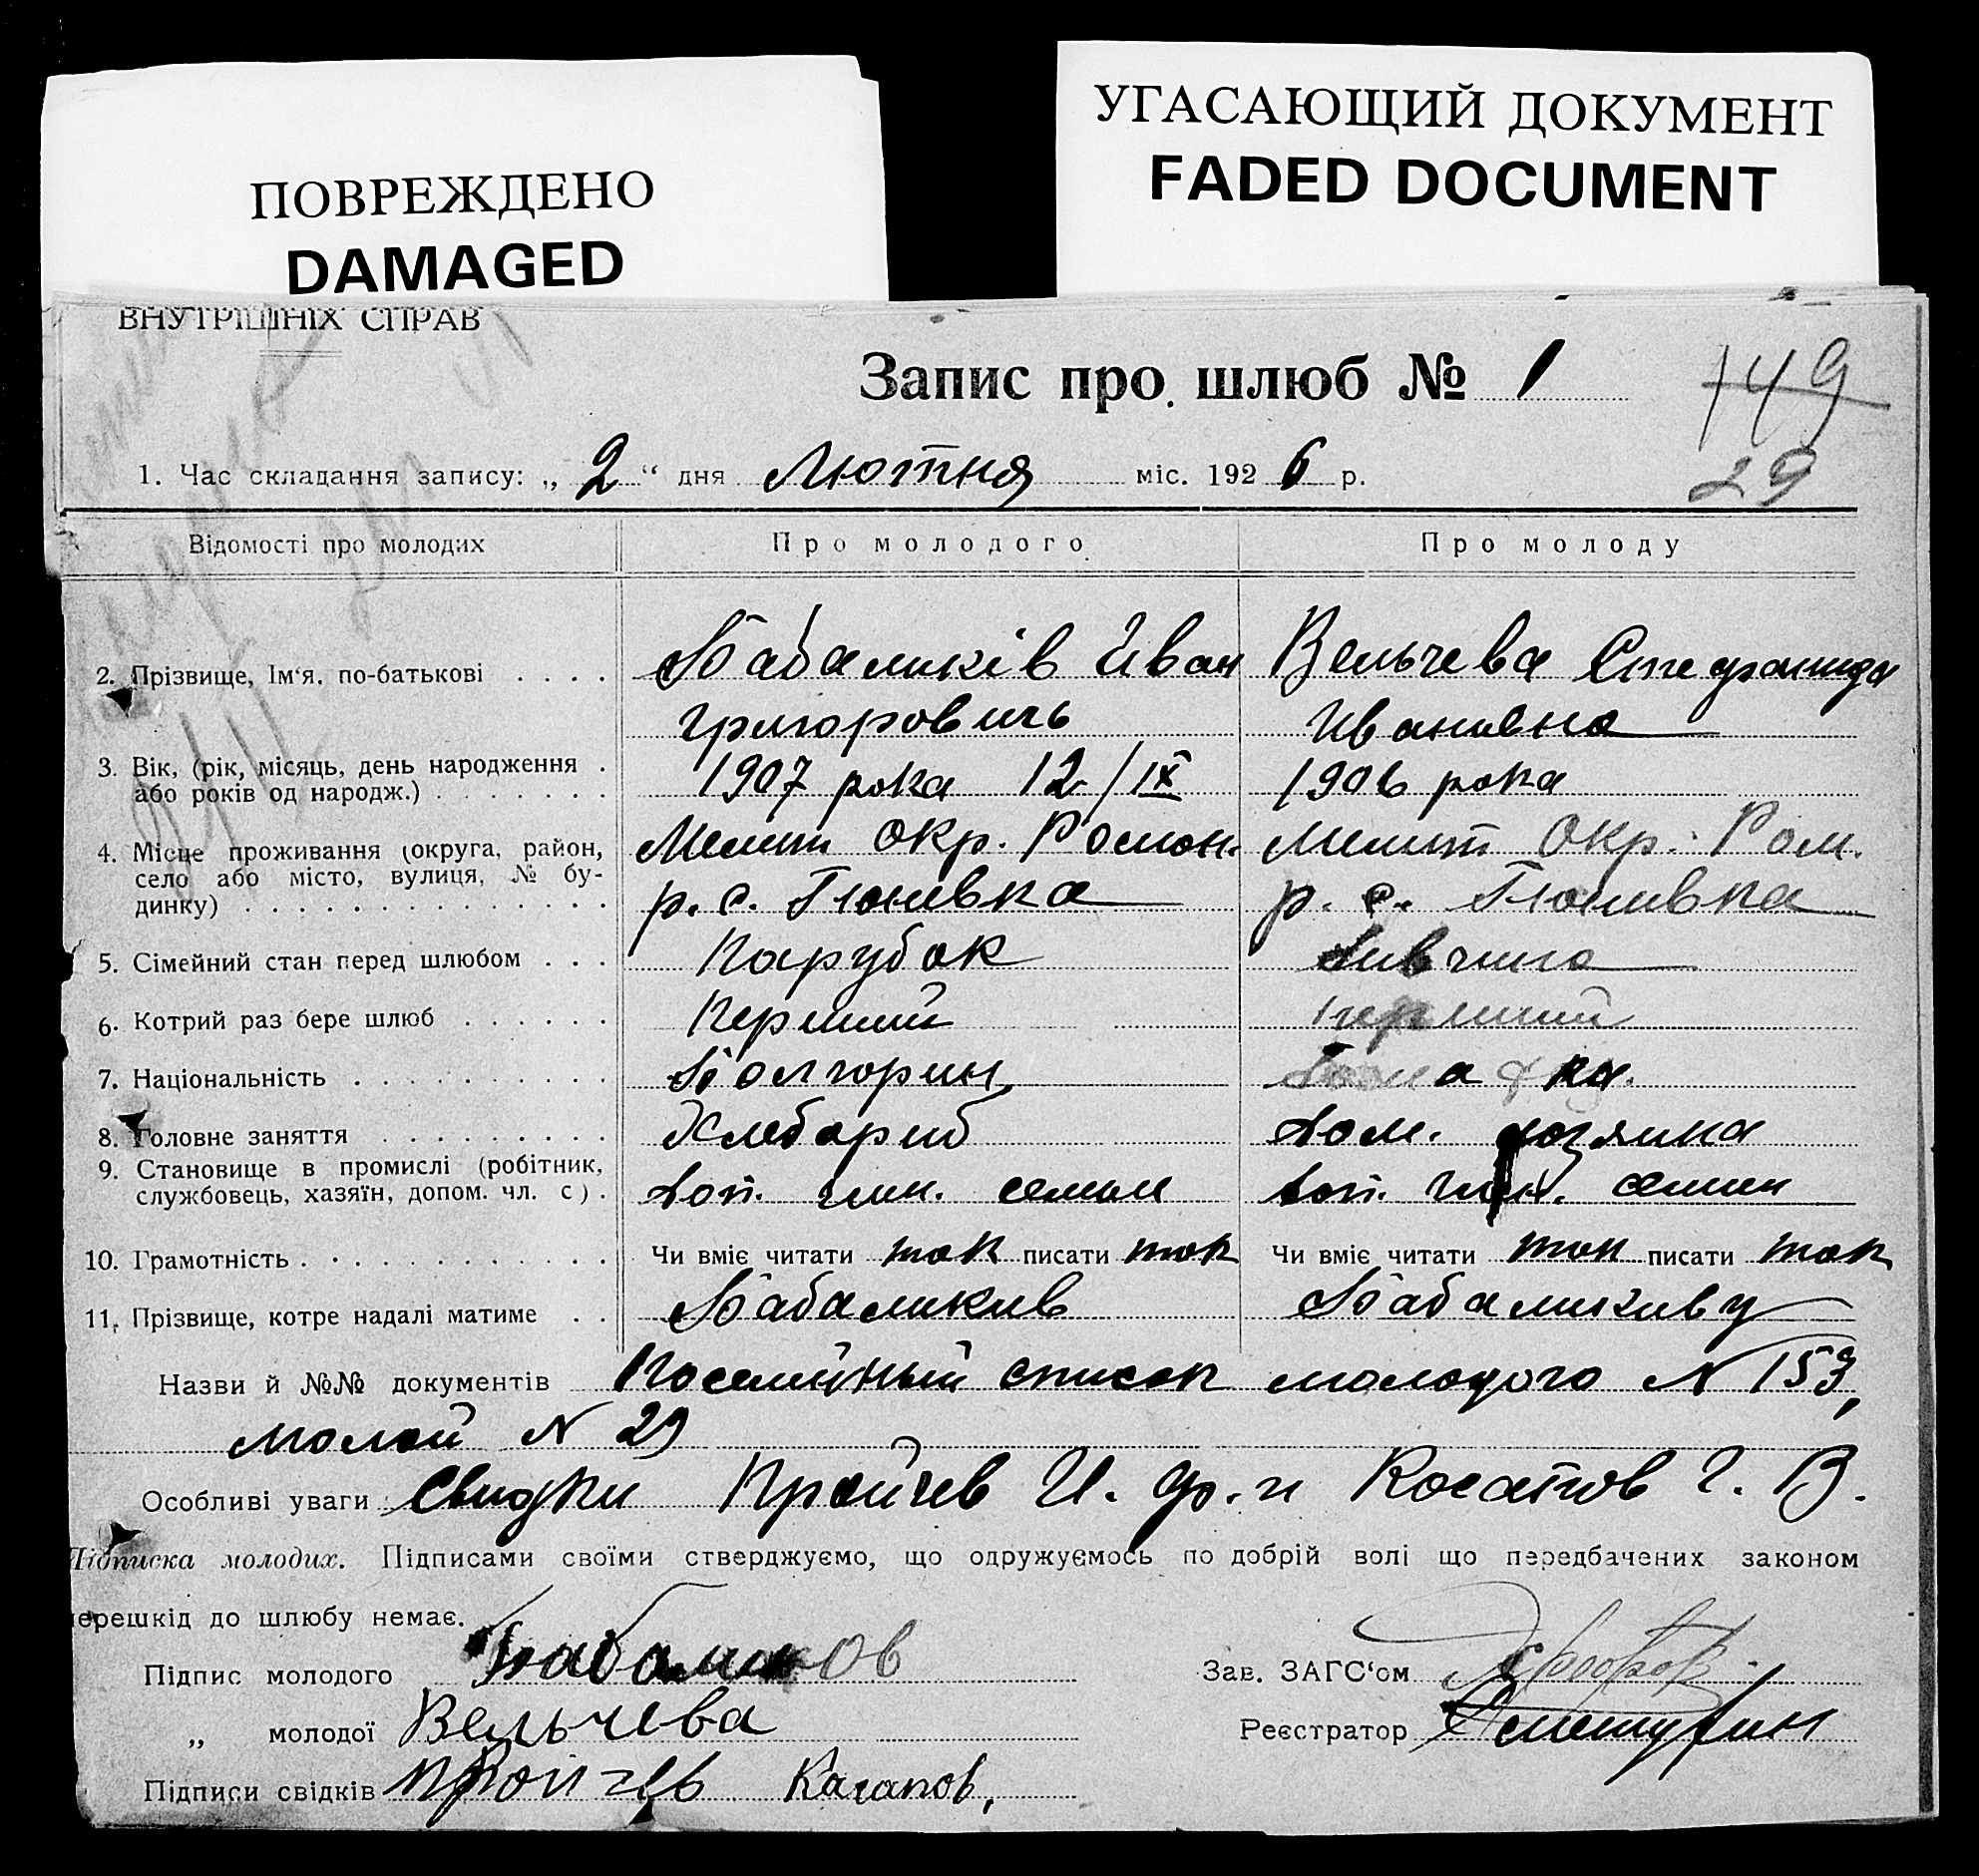 УГАСАЮЩИЙ ДОКУМЕНТ
FADED DOCUMENT
ПОВРЕЖДЕНО
DAMAGED
ВНУТРІШНІХ СПРАВ
Запис про шлюб № 1
149
29
1. Час складання запису: „ 2 “ дня Лютня міс. 1926 р.
Відомості про молодих Про молодого Про молоду
2. Прізвище, Ім'я, по-батькові . . . . Бабаликів Иван Вельчева Стефанида
Григоровичь Иванивна
3. Вік, (рік, місяць, день народження . 1907 рока 12/IX 1906 рока
або років од народж.) . . . . . . .
4. Місце проживання (округа, район, Мелит Окр. Роман. Мелит Окр. Ром.
село або місто, вулиця, № бу-
динку) . . . . . . . . . . . . . . р. с. Гюнивка р. с. Гюнивка
5. Сімейний стан перед шлюбом . . . Парубок Дивчина
6. Котрий раз бере шлюб . . . . . . Перший перший
7. Національність . . . . . . . . . . Болгорин
8. Головне заняття . . . . . . . . . Хлебороб Дом. хозяика
9. Становище в промислі (робітник, Доп. член. семьи Доп. член. семии
службовець, хазяїн, допом. чл. с) .
10. Грамотність . . . . . . . . . . . . Чи вміє читати так писати так Чи вміє читати так писати так
11. Прізвище, котре надалі матиме . . Бабаликив Бабаликиву
Назви й №№ документів Посемейный список молодого N 153,
молой N 29
Особливі уваги Свидки Кройчев И. Ф. и Косапов Г. В.
Підписка молодих. Підписами своїми стверджуємо, що одружуємось по добрій волі що передбачених законом
перешкід до шлюбу немає.
Підпис молодого Бабаликов Зав. ЗАГС'ом
„ молодої Вельчева Реєстратор
Підписи свідків